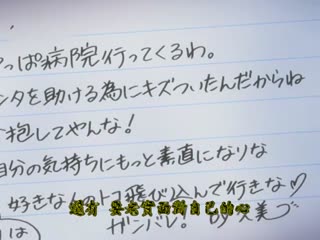 っぱ病院行ってくるわ。
ンタを助ける為にキズついたんだからね
抱してやんな!
自分の気持ちにもっと素直になりな
好きな人のトコ飛び込んで行きな♡
ガンバレ。
還有 要老實面對自己的心
は